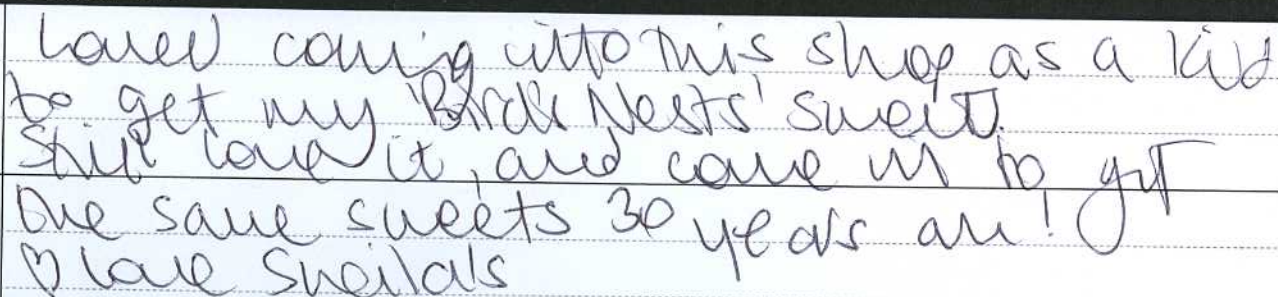 Loved coming into this shop as a kid
to get my 'Birds Nests' sweets.
Still love it, and come in to get
the same sweets 30 years on!
♡ love Sheila's